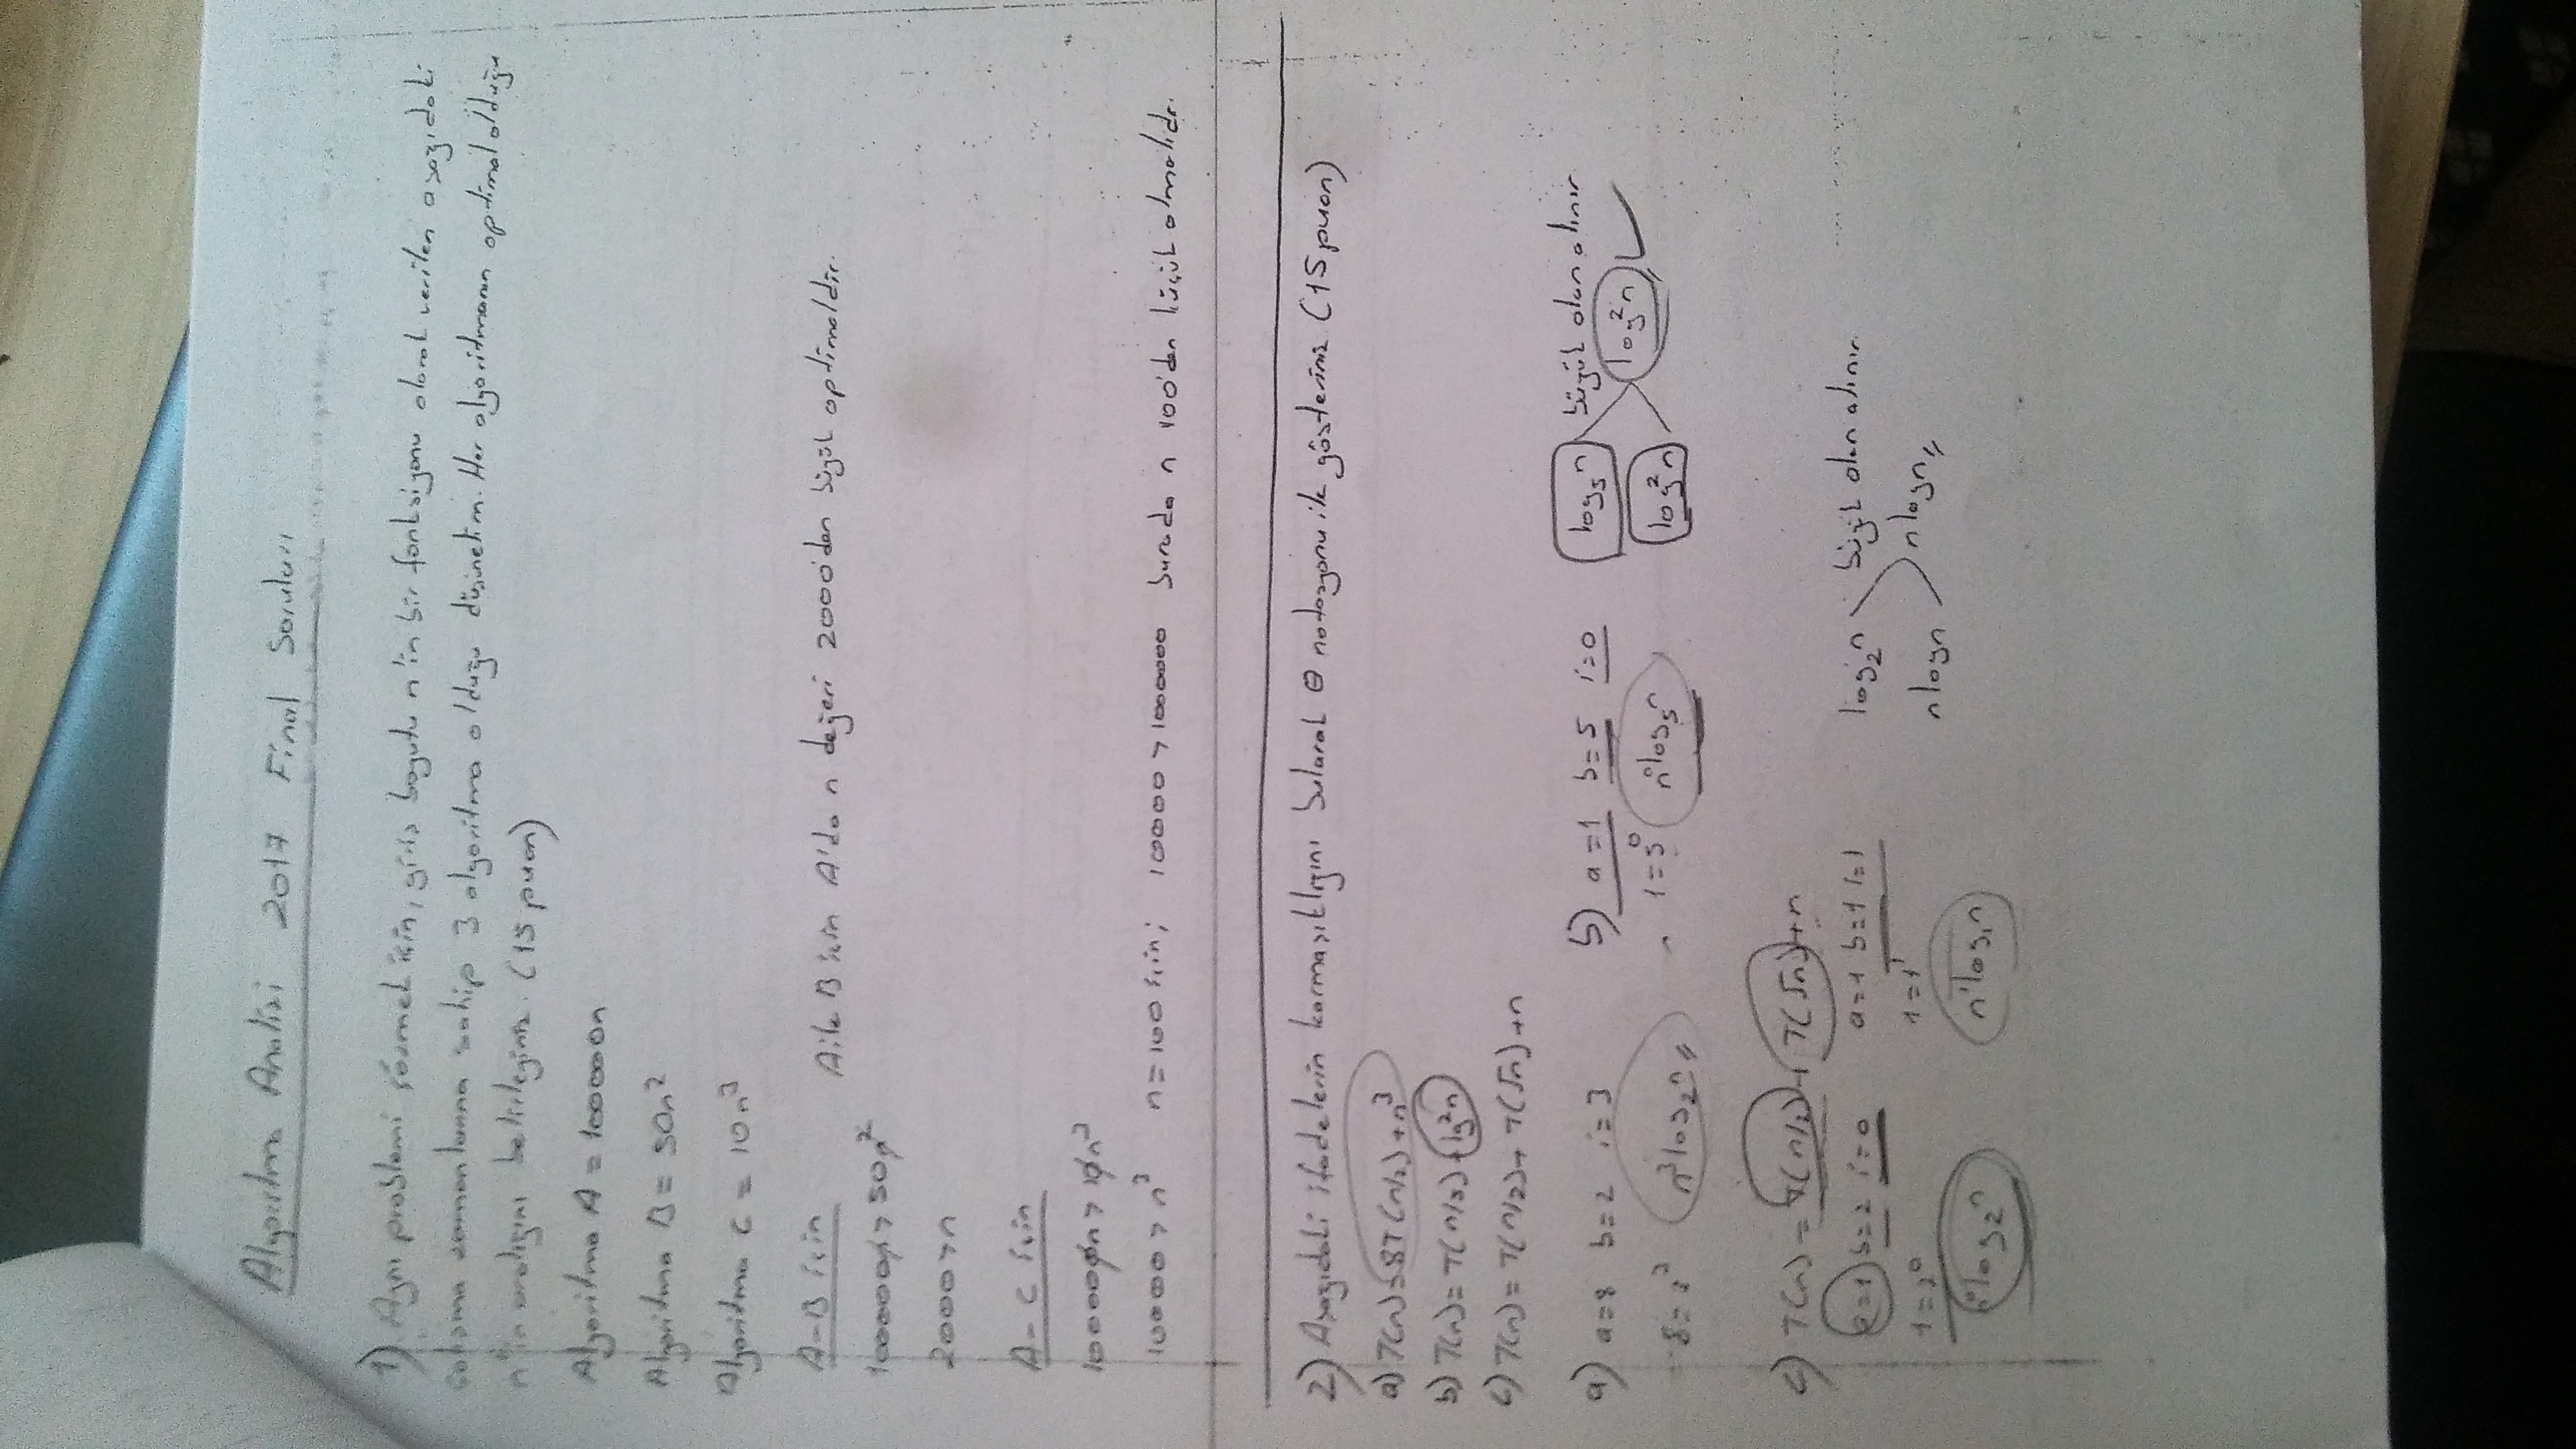 Algoritma Analizi 2017 Final Soruları
1) Aynı problemi çözmek için, giriş boyutu n'in bir fonksiyonu olarak verilen aşağıdaki
çalışma zamanlarına sahip 3 algoritma olduğu düşünelim. Her algoritmanın optimal olduğu
n'in aralığını belirleyiniz. (15 puan)
Algoritma A = 100000n
Algoritma B = 50n²
Algoritma C = 10n³
A-B için A ile B için A'da n değeri 2000'den büyük optimaldir.
100000n > 50n²
2000 > n
A-C için
100000n > 10n³
10000 > n³ n=100 için; 10000 > 1000000 burada n 100'den küçük olmalıdır.
2) Aşağıdaki ifadelerin karmaşıklığını bularak Θ notasyonu ile gösteriniz (15 puan)
a) T(n) = 8T(n/2) + n³
b) T(n) = T(n/5) + lg²n
c) T(n) = T(n/2) + T(√n) + n
a) a=8 b=2 i=3
8=2³ n³log₂n
b) a=1 b=5 i=0
1=5⁰ n⁰log₅n
log₅n büyük olan alınır
log²n log²n
c) T(n) = T(n/2) + T(√n) + n
a=1 b=2 i=0 a=1 b=1 i=1
1=2⁰ 1=1¹
n⁰log₂n n¹log₁n
log₂n büyük olan alınır.
nlogn nlogn